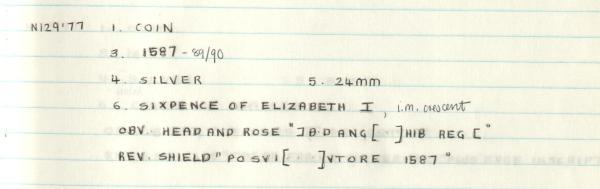 N129'77 1. COIN
3. 1587 - 89/90
4. SILVER 5. 24mm
6. SIXPENCE OF ELIZABETH I, i.m. crescent
OBV. HEAD AND ROSE "]B·D ANG[ ]HIB REG ["
REV. SHIELD "POSVI[ ]VTORE 1587"